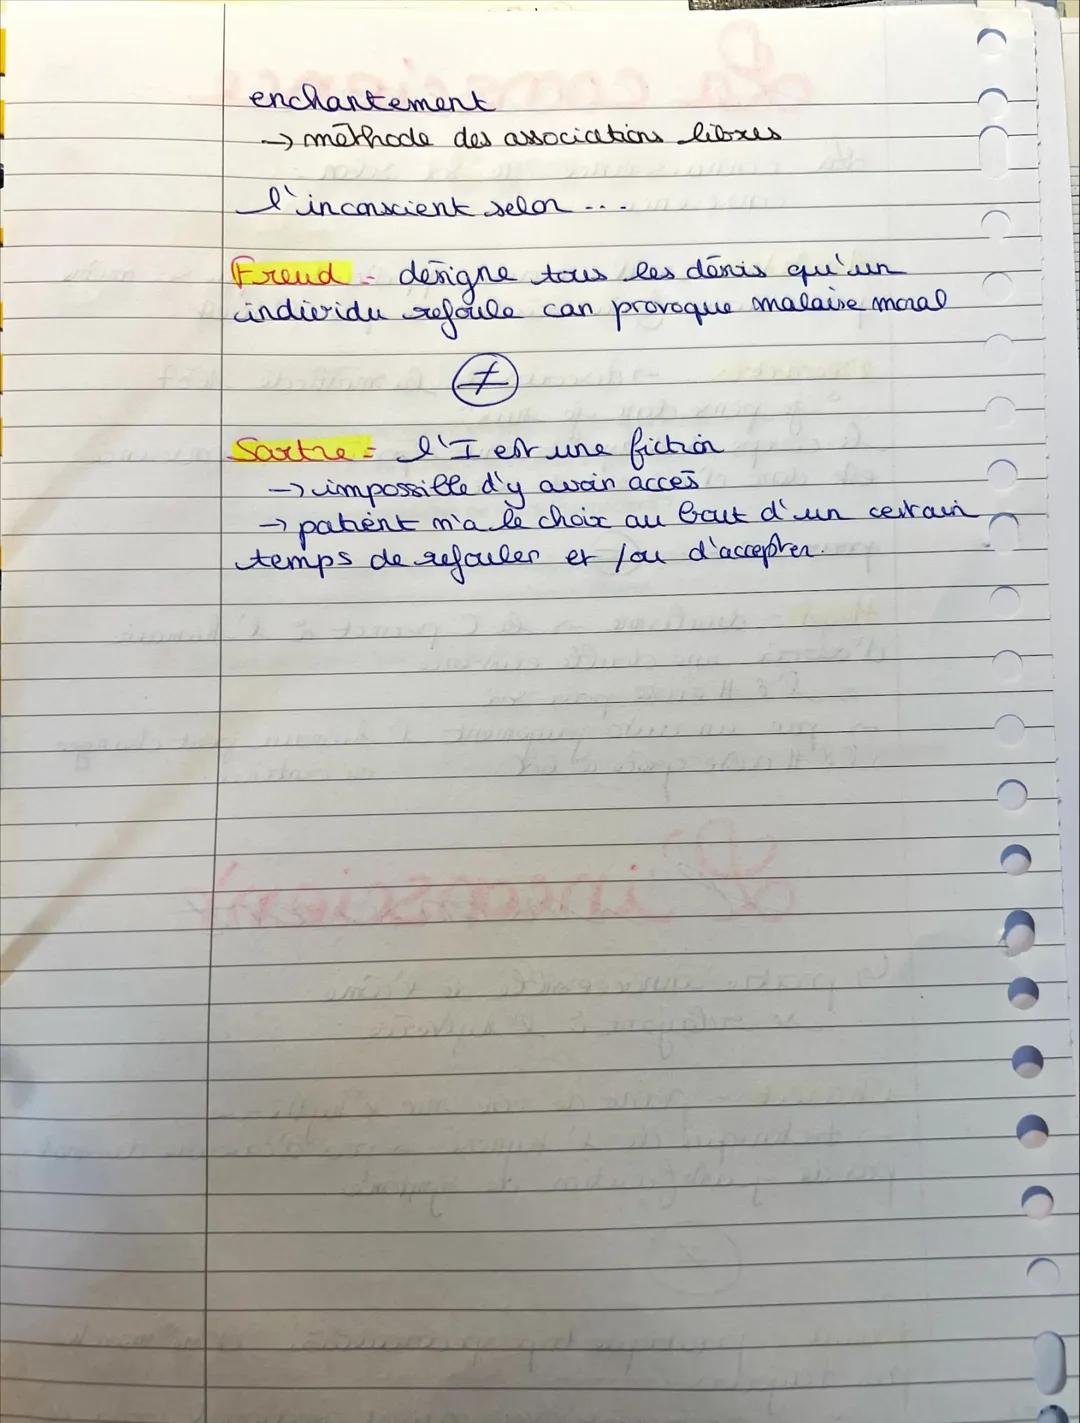 enchantement
→ méthode des associations libres
l'inconscient selon ...
Freud = désigne tous les désirs qu'un
individu refoule car provoque malaise moral
≠
Sartre = l'I est une fiction
→ impossible d'y avoir accès
→ patient n'a le choix au bout d'un certain
temps de refouler et /ou d'accepter.